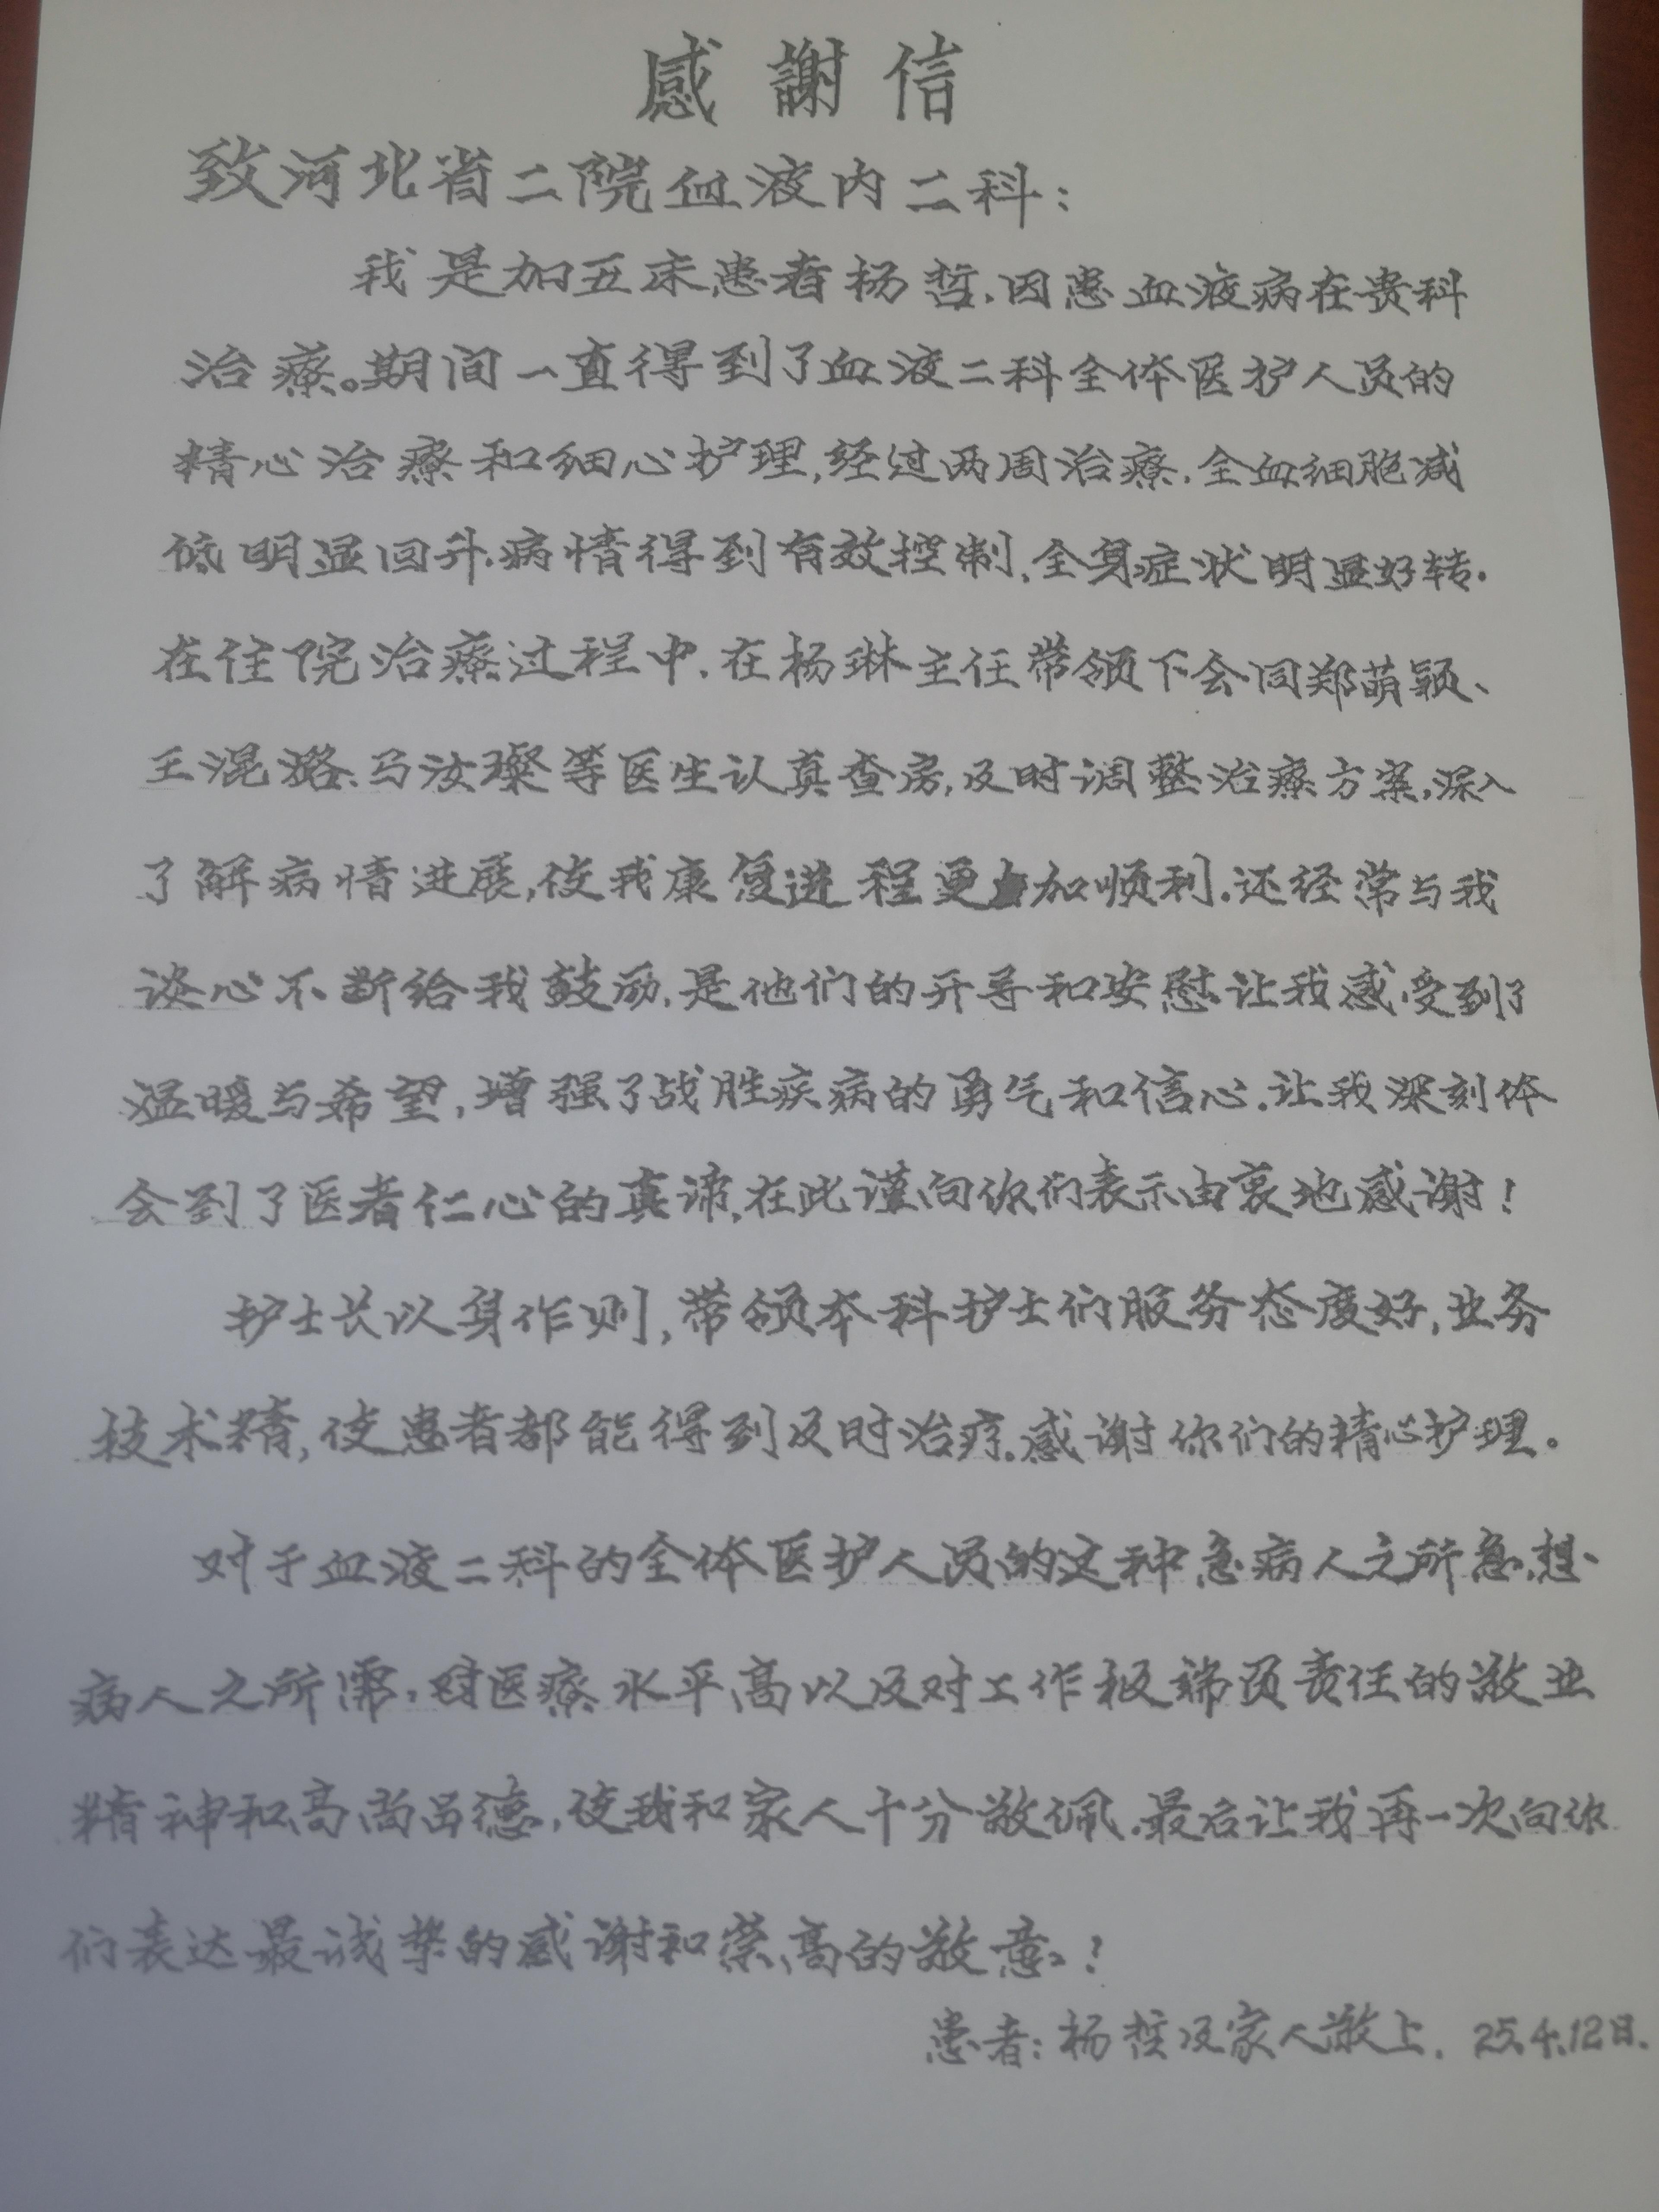 感謝信
致河北省二院血液内二科：
我是加五床患者杨哲.因患血液病在贵科
治療。期间一直得到了血液二科全体医护人员的
精心治療和细心护理,经过两周治療.全血细胞减
低明显回升.病情得到有效控制,全身症状明显好转.
在住院治療过程中.在杨琳主任带领下会同郑萌颖、
王混璐、马汝璨等医生认真查房,及时调整治療方案,深入
了解病情进展,使我康复进程更加顺利.还经常与我
谈心不断给我鼓励,是他们的开导和安慰让我感受到了
温暖与希望,增强了战胜疾病的勇气和信心.让我深刻体
会到了医者仁心的真谛,在此谨向你们表示由衷地感谢!
护士长以身作则,带领本科护士们服务态度好,业务
技术精,使患者都能得到及时治疗.感谢你们的精心护理。
对于血液二科的全体医护人员的这种急病人之所急,想
病人之所需,对医療水平高以及对工作极端负责任的敬业
精神和高尚品德,使我和家人十分敬佩.最后让我再一次向你
们表达最诚挚的感谢和崇高的敬意!
患者:杨哲及家人敬上. 25.4.12日.